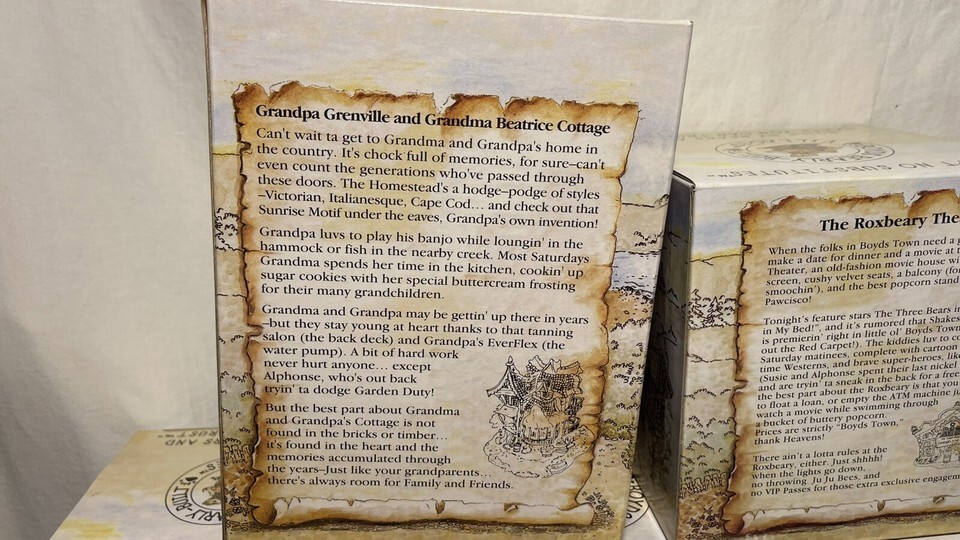 Grandpa Grenville and Grandma Beatrice Cottage
Can't wait ta get to Grandma and Grandpa's home in
the country. It's chock full of memories, for sure–can't
even count the generations who've passed through
these doors. The Homestead's a hodge–podge of styles
–Victorian, Italianesque, Cape Cod... and check out that
Sunrise Motif under the eaves, Grandpa's own invention!
Grandpa luvs to play his banjo while loungin' in the
hammock or fish in the nearby creek. Most Saturdays
Grandma spends her time in the kitchen, cookin' up
sugar cookies with her special buttercream frosting
for their many grandchildren.
Grandma and Grandpa may be gettin' up there in years
–but they stay young at heart thanks to that tanning
salon (the back deck) and Grandpa's EverFlex (the
water pump). A bit of hard work
never hurt anyone... except
Alphonse, who's out back
tryin' ta dodge Garden Duty!
But the best part about Grandma
and Grandpa's Cottage is not
found in the bricks or timber...
it's found in the heart and the
memories accumulated through
the years–Just like your grandparents...
there's always room for Family and Friends.
SUBSTITUTES™
The Roxbeary The
When the folks in Boyds Town need a
make a date for dinner and a movie at
Theater, an old-fashion movie house
screen, cushy velvet seats, a balcony (for
smoochin'), and the best popcorn stand
Pawcisco!
Tonight's feature stars The Three Bears
in My Bed!", and it's rumored that Shakes
is premierin' right in little ol' Boyds Town
out the Red Carpet!). The kiddies luv to
Saturday matinees, complete with cartoon
time Westerns, and brave super-heroes, like
(Susie and Alphonse spent their last nickel
and are tryin' ta sneak in the back for a free
the best part about the Roxbeary is that you
to float a loan, or empty the ATM machine
watch a movie while swimming through
a bucket of buttery popcorn.
Prices are strictly "Boyds Town,"
thank Heavens!
There ain't a lotta rules at the
Roxbeary, either. Just shhhh!
when the lights go down,
no throwing Ju Ju Bees, and
no VIP Passes for those extra exclusive